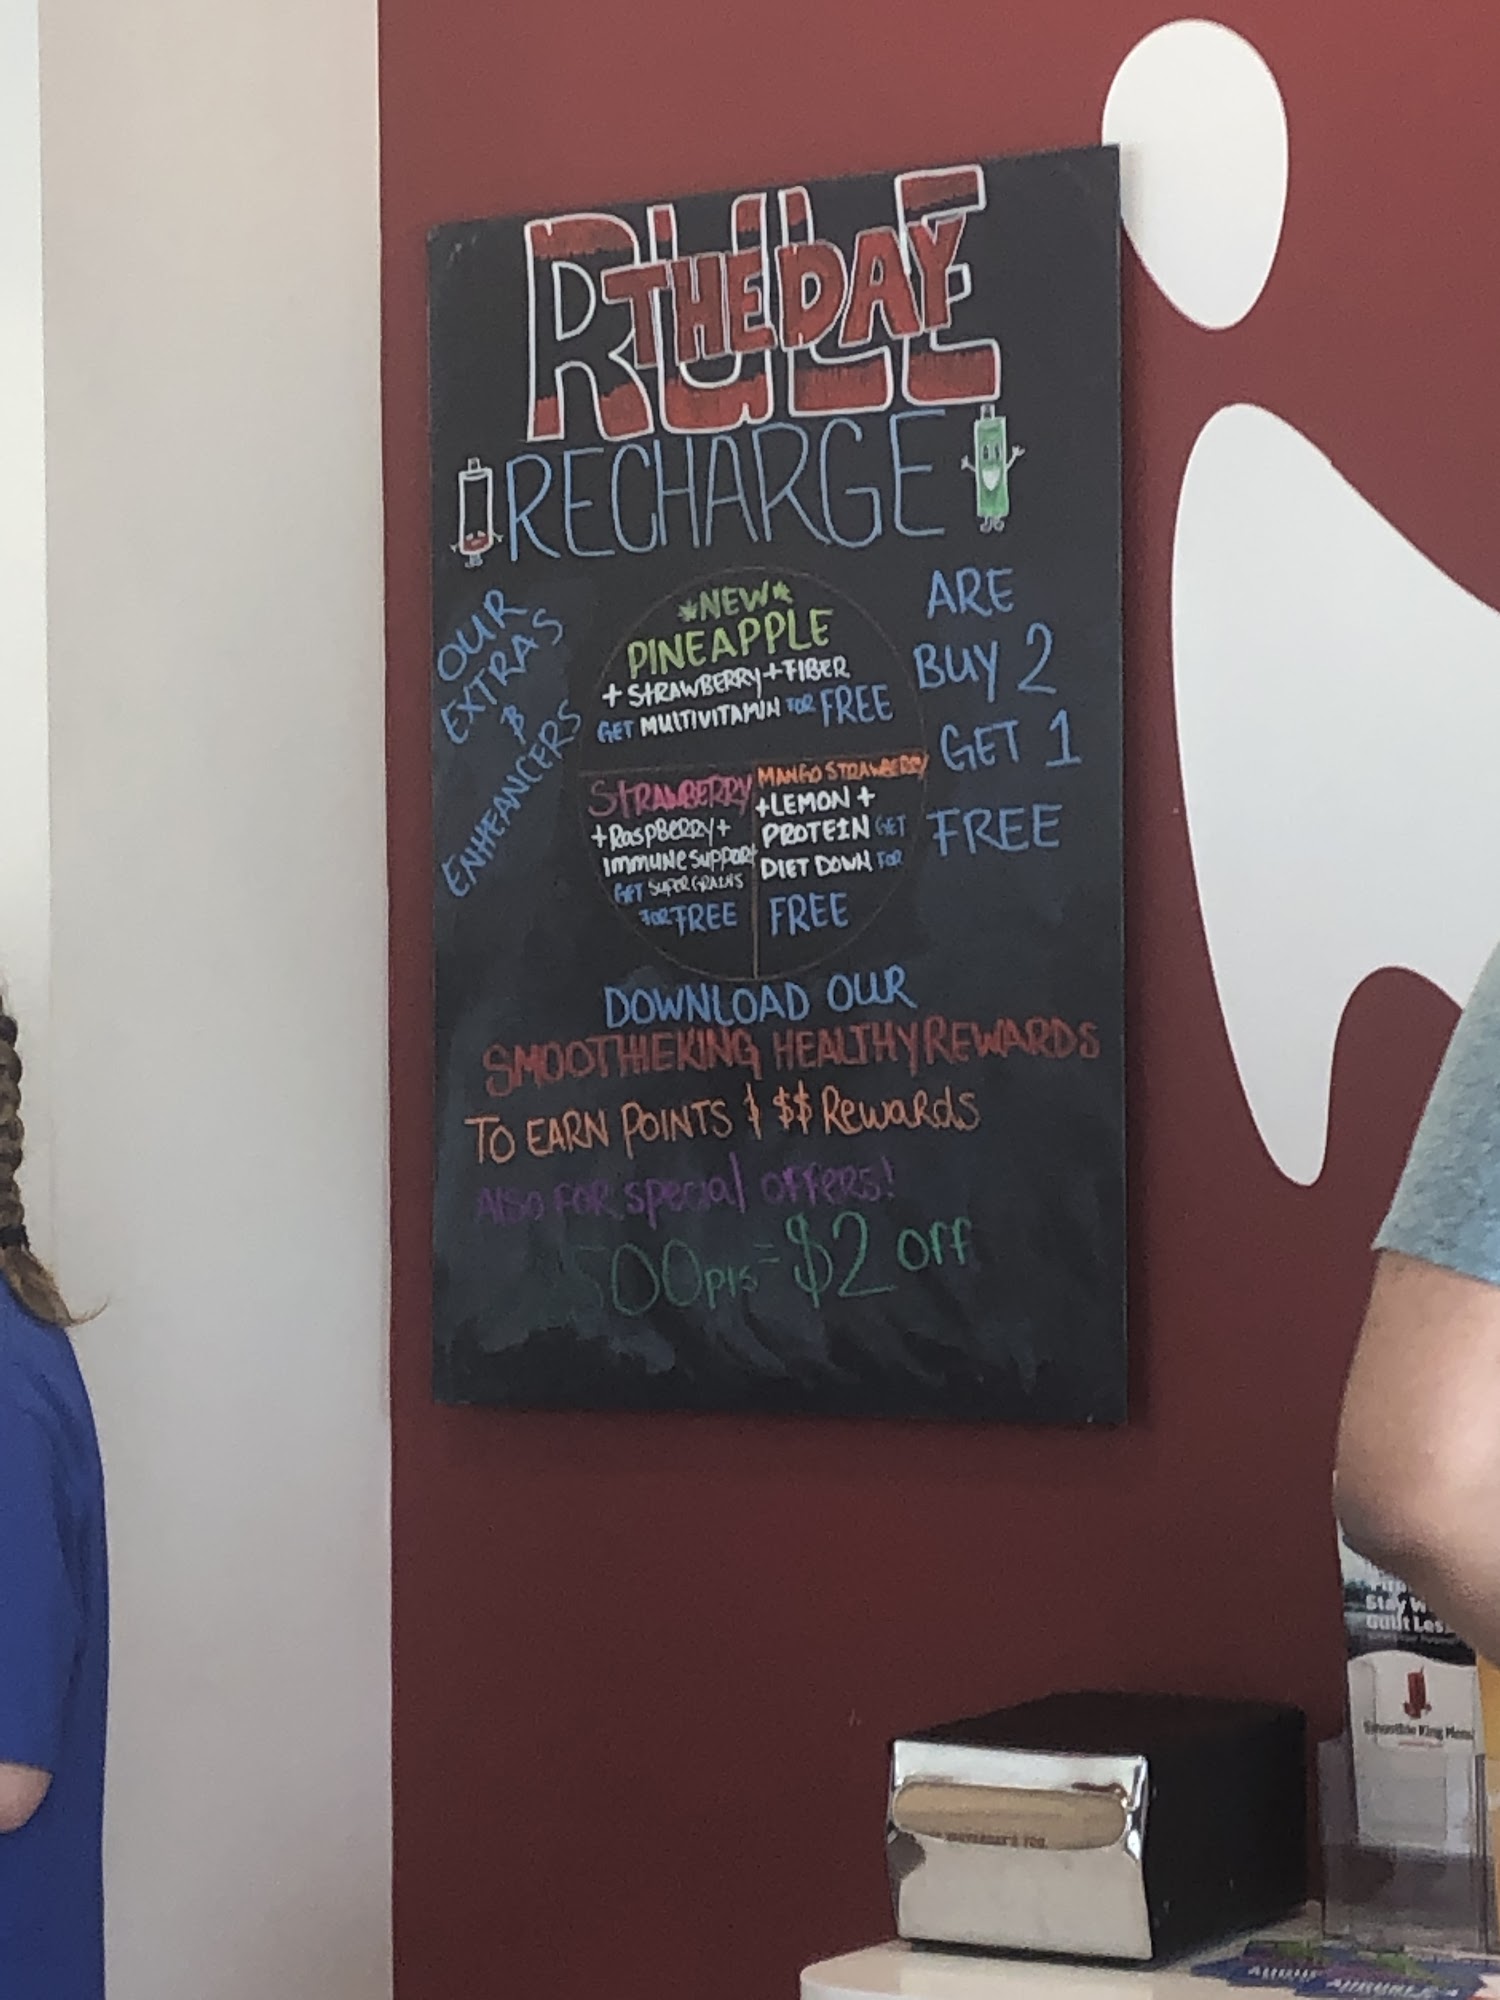 RULE
THE DAY
RECHARGE
OUR
EXTRAS
&
ENHEANCERS
*NEW*
PINEAPPLE
+ STRAWBERRY + FIBER
GET MULTIVITAMIN FOR FREE
STRAWBERRY
+ RaspBERRY +
immune support
GET SUPER GRAINS
FOR FREE
MANGO STRAWBERRY
+ LEMON +
PROTEIN GET
DIET DOWN FOR
FREE
ARE
BUY 2
GET 1
FREE
DOWNLOAD OUR
SMOOTHIEKING HEALTHY REWARDS
TO EARN POINTS & $$ Rewards
Also FOR special offers!
500pts = $2 off
Stay
Guilt Less
Smoothie King